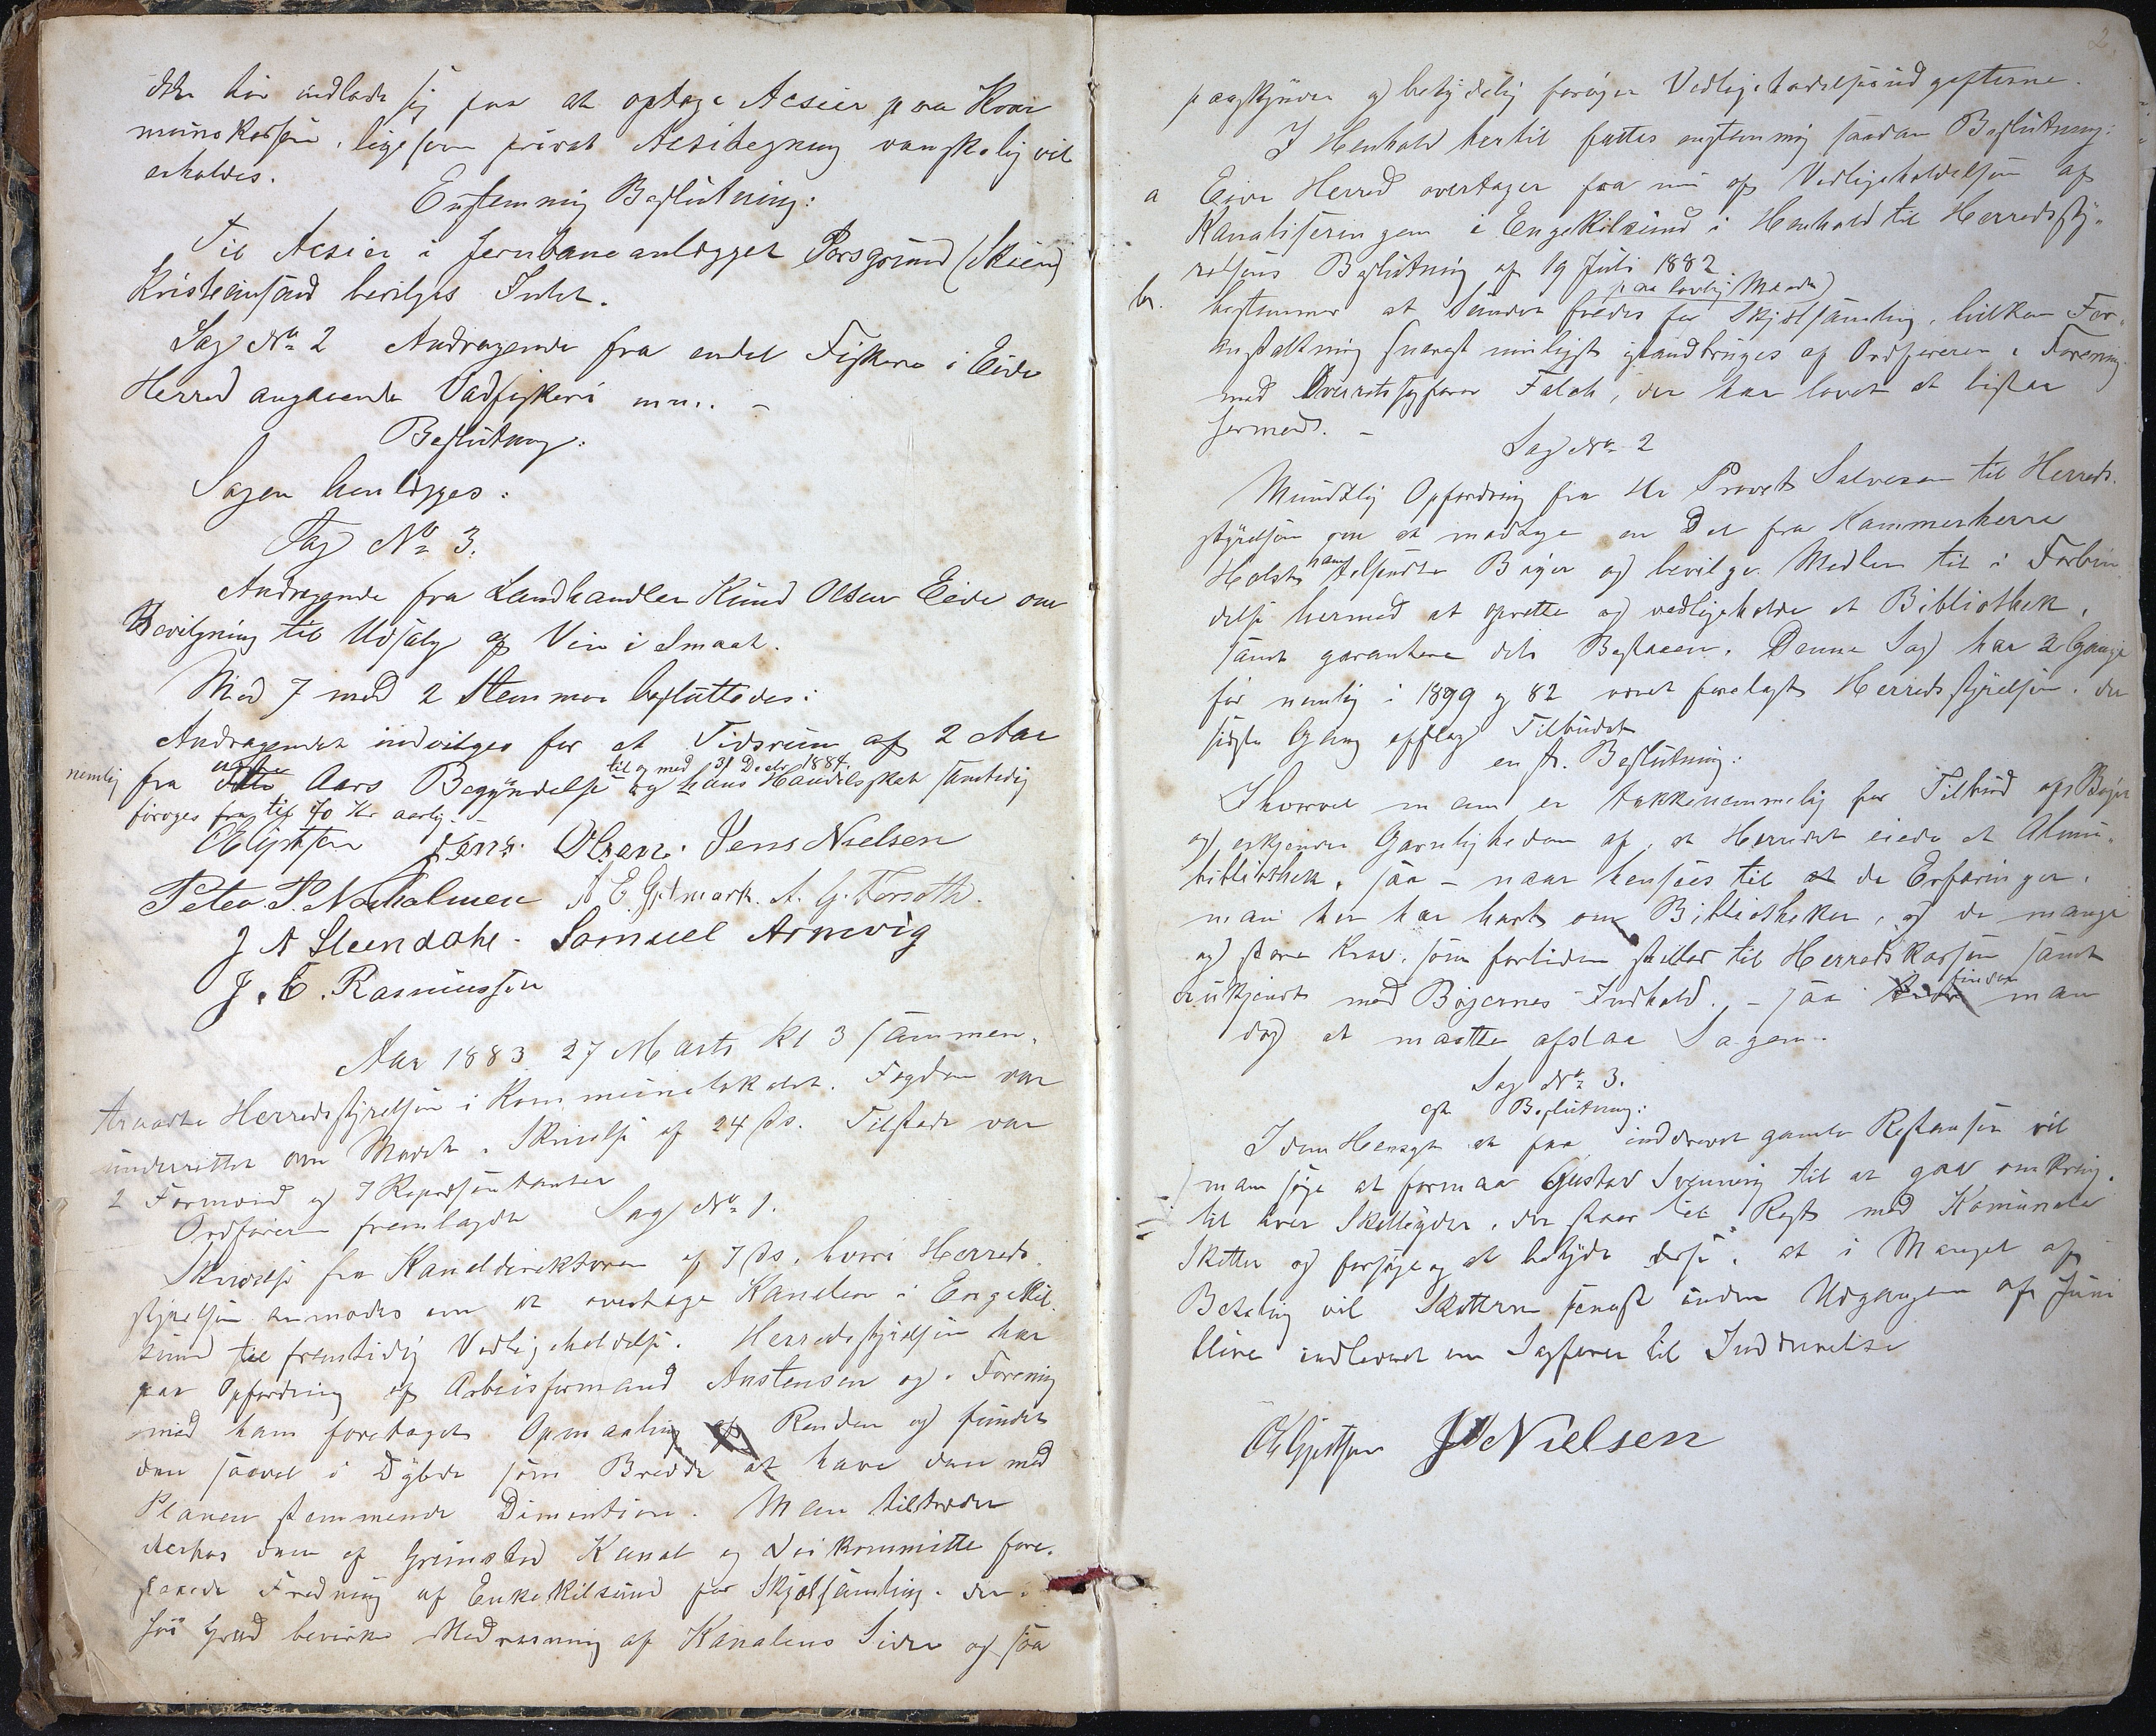 ikke bör indlade sig paa at optage Acsier paa Kom
munekassen, ligesom privat Acsitegning vanskelig vil
erholdes.
Enstemmig Beslutning:
Til Acsier i Jernbaneanlægget Porsgrund (Skien)
Kristiansand beviliges Intet.
Sag No 2 Andragende fra endel Fiskere i Eide
Herred angaaende Vadfiskeri m.m. –
Beslutning:
Sagen henlægges:
Sag No 3.
Andragende fra Landhandler Knud Olsen Eide om
Bevilgning til Udsalg af Vin i Smaat.
Med 7 mod 2 Stemmer besluttedes:
Andragendet indvilges for et Tidsrum af 2 Aar
nemlig fra Aars Begyndelse til og med 31 Decbr 1884. og hans Handelsskat samtidig
foröges fra til 70 Kr aarlig. –
Jens Olsen. Jens Nielsen
Peter P. Narholmen A E Gitmark. A. G. Torsoth.
J A Steendahl. Samuel Arnevig
J. C. Rasmussen
Aar 1883 27 Marts Kl 3 sammen-
traadte Herredsstyrelsen i Kommunelokalet. Fogden var
underrettet om Mödet i Skrivelse af 24 ds. Tilstede var
2 Formænd og 7 Repræsentanter
Ordföreren fremlagde Sag No 1.
Skrivelse fra Kanaldirektören af 7 ds. hvori Herreds-
styrelsen anmodes om at overtage Kanalen i Engekil-
sund til fremtidig Vedligeholdelse. Herredsstyrelsen har
paa Opfordring af Arbeisformand Austensen og i Forening
med ham foretaget Opmaaling af Renden og fundet
den saavel i Dybde som Bredde at have den med
Planen stemmende Dimention. Man tiltræder
derhos den af Grimstad Kanal og Veikommitte fore-
slaaede Fredning af Enkekilsund for Skjælsamling, der i
höi Grad bevirke Nedrasning af Kanalens Sider og saa
2
paaskynder og betydelig foröger Vedligeholdelsesudgifterne.
I Henhold hertil fattes enstemmig saadan Beslutning:
a Eide Herred overtager fra nu af Vedligeholdelsen af
Kanaliseringen i Engekilsund i Henhold til Herredssty-
relsens Beslutning af 19 Juli 1882
b. bestemmer at Sundet paa lovlig Maade) fredes for Skjælsamling, hvilken For-
anstaltning snarest muligst iværksættes af Ordföreren i Forening
med Overretssagförer Falch, der har lovet at bistaa
hermed. –
Sag No 2
Mundtlig Opfordring fra Hr Provst Salvesen til Herreds-
styrelsen om at modtage en Del fra Kammerherre
Holst ham tilsendte Böger og bevilge Midler til i Forbin
delse hermed at oprette og vedligeholde et Bibliothek,
samt garantere dets Bestaaen. Denne Sag har 2 Gange
för nemlig i 1899 og 82 været forelagt Herredsstyrelsen, der
sidste Gang afslog Tilbudet
enst. Beslutning:
Ihvorvel man er takknemmelig for Tilbud af Böger
og erkjender Gavnligheden af, at Herredet eiede et Almu-
bibliothek, saa – naar hensees til de Erfaringer,
man her har havt om Bibliotheker, og de mange
og store Krav, som fortiden stilles til Herredskassen samt
er ukjendt med Bögernes Indhold. – saa finder man
dog at maatte afslaa Sagen.
Sag No 3.
Beslutning:
I den Hensigt at faa inddrevet gamle Restanser vil
man söge at formaa Gustav Svenning til at gaa omkring
til hver Skatteyder, der staar til Rest med Komunale
Skatter og forsöge og at betyde disse, at i Mangel af
Betaling vil Skatterne senest inden Udgangen af Juni
blive indleveret en Sagförer til Inddrivelse
J Nielsen